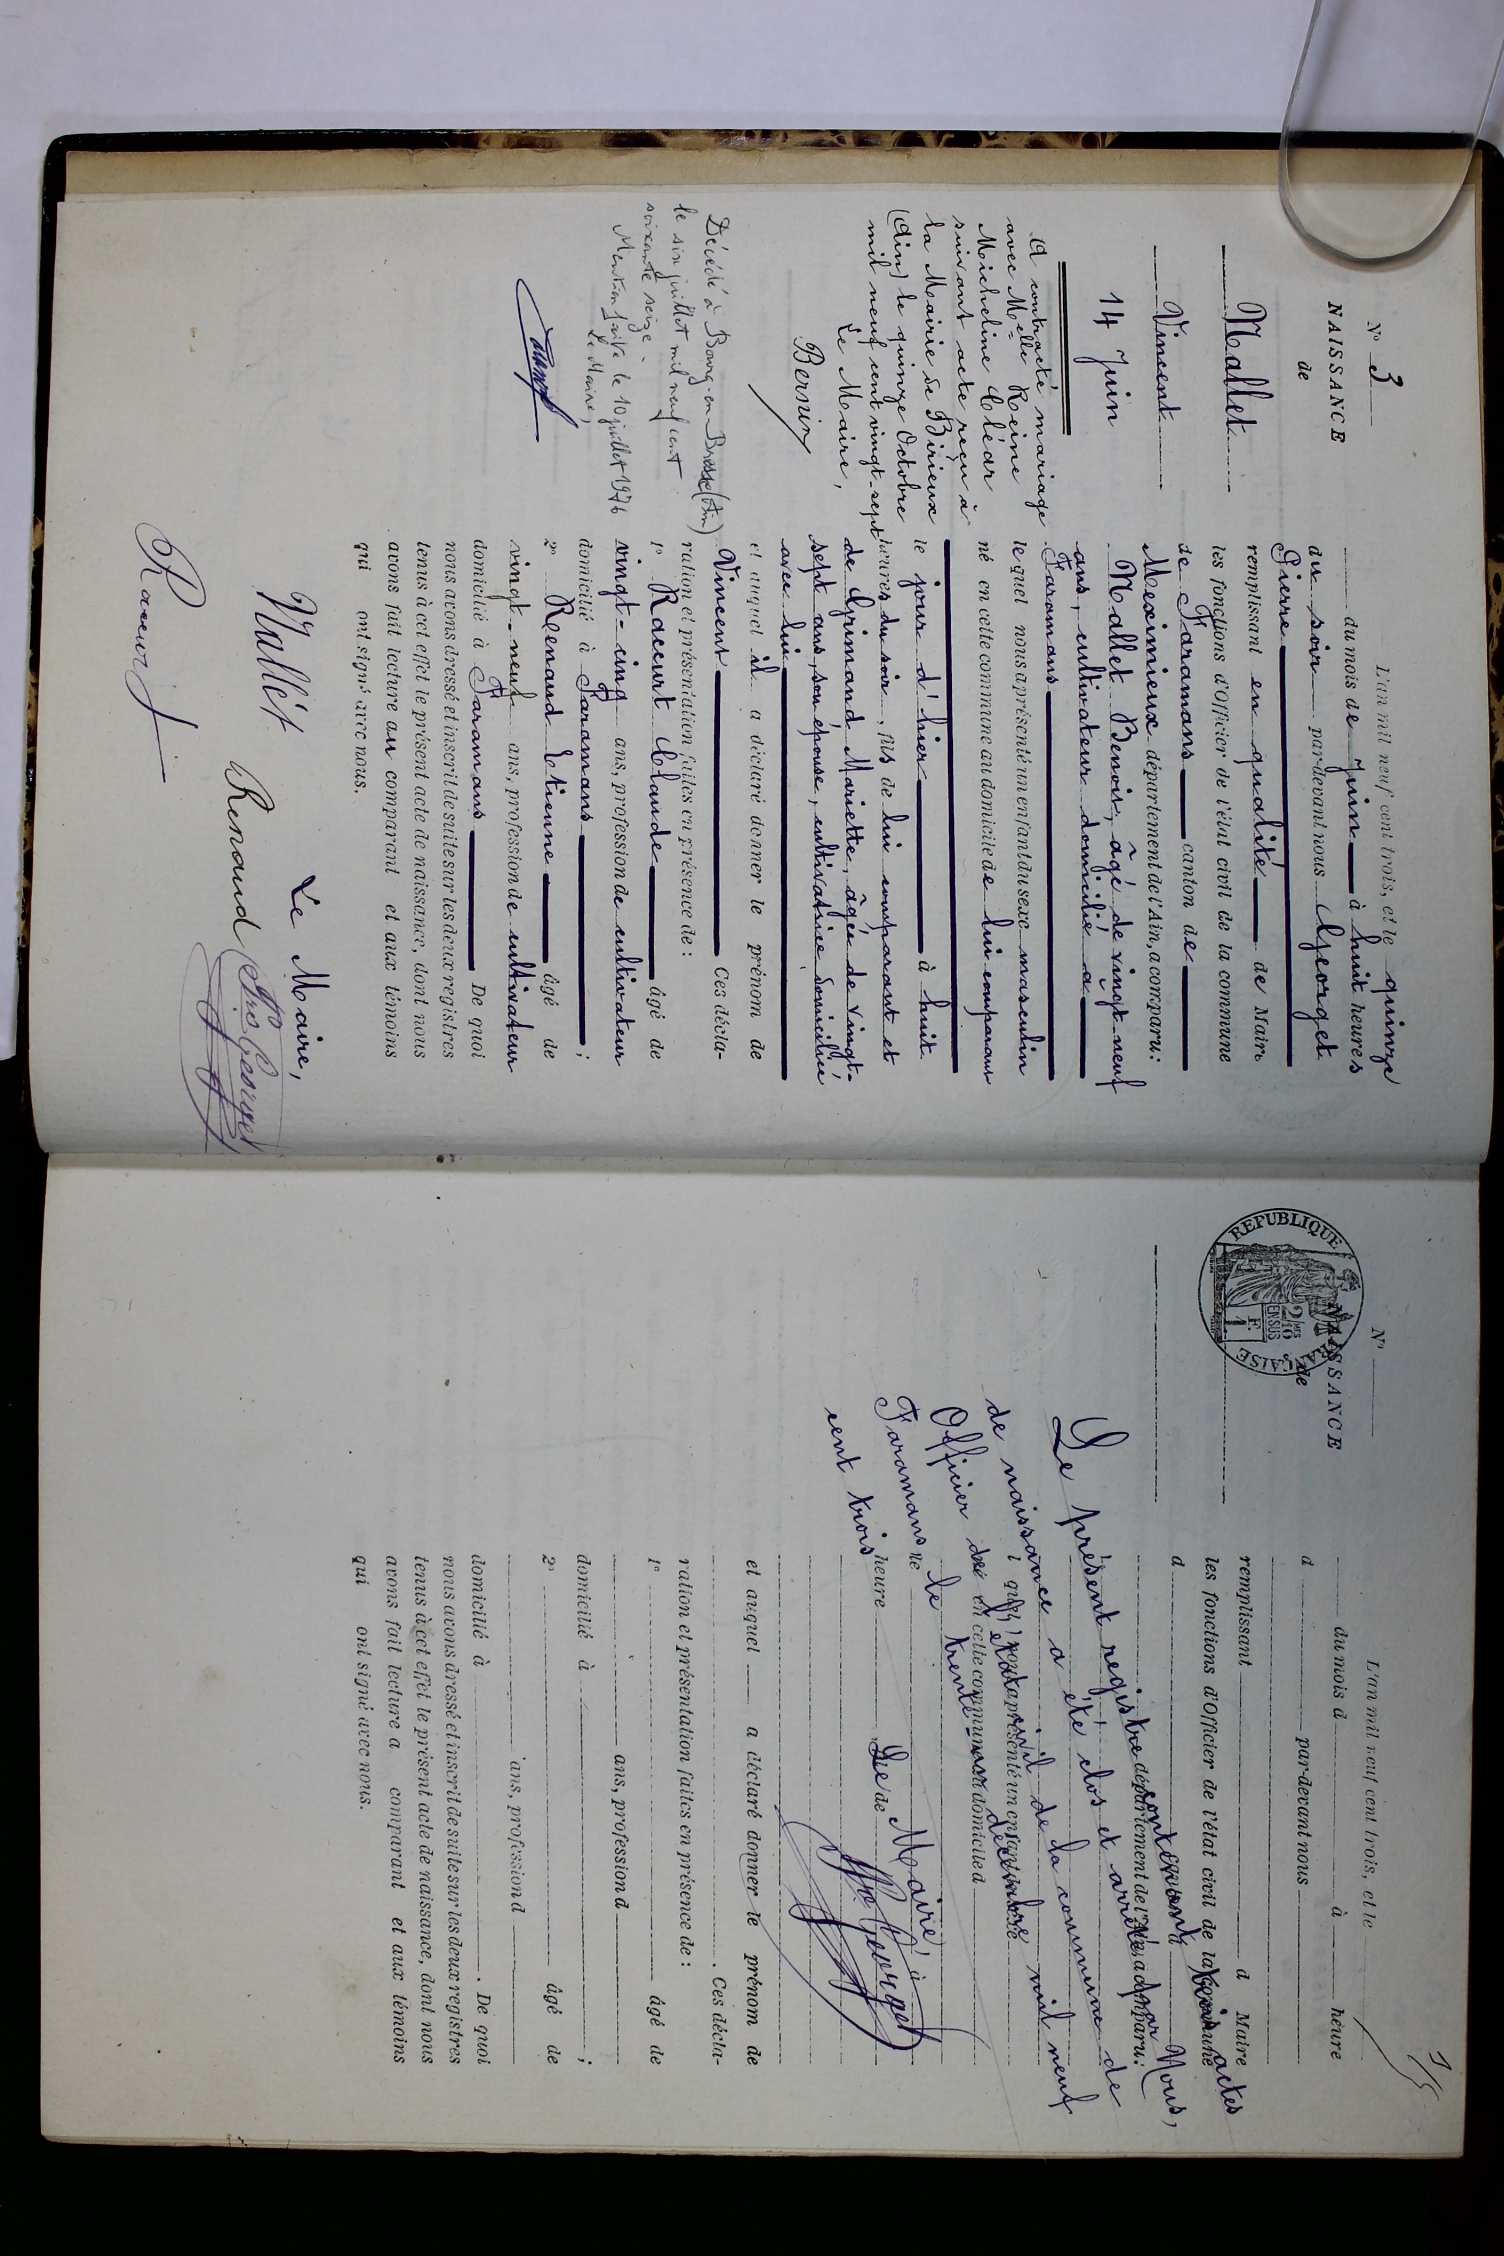 N° 3
NAISSANCE
de
Mallet
Vincent
14 Juin
A contracté mariage
avec Melle Reine
Micheline Cléar
suivant acte reçu à
la Mairie de Birieux
(Ain) le quinze Octobre
mil neuf cent vingt-sept
Le Maire,
Décédé à Bourg-en-Bresse (Ain)
le six juillet mil neuf cent
soixante seize -
Mention faite le 10 juillet 1976
Le Maire,
L'an mil neuf cent trois, et le quinze
du mois de Juin à huit heures
du soir par-devant nous Georget
Pierre
remplissant en qualité de Maire
les fonctions d'Officier de l'état civil de la commune
de Faramans canton de
Meximieux département de l'Ain, a comparu:
Mallet Benoit, âgé de vingt-neuf
ans, cultivateur domicilié à
Faramans
lequel nous a présenté un enfant du sexe masculin
né en cette commune au domicile de lui comparant
le jour d'hier à huit
heures du soir, fils de lui comparant et
de Grimand Mariette, âgée de vingt-
sept ans, son épouse, cultivatrice domiciliée
avec lui
et auquel il a déclaré donner le prénom de
Vincent Ces décla-
ration et présentation faites en présence de:
1° Raccurt Claude âgé de
vingt-cinq ans, profession de cultivateur
domicilié à Faramans ;
2° Renaud Etienne âgé de
vingt-neuf ans, profession de cultivateur
domicilié à Faramans De quoi
nous avons dressé et inscrit de suite sur les deux registres
tenus à cet effet le présent acte de naissance, dont nous
avons fait lecture au comparant et aux témoins
qui ont signé avec nous.
Le Maire,
Mallet Renaud Pre Georget
Raccurt
1/5
N°
NAISSANCE
de
REPUBLIQUE
2/10 EN SUS
F. 1
L'an mil neuf cent trois, et le
du mois d à heure
d par-devant nous
remplissant d Maire
les fonctions d'Officier de l'état civil de la commune
d canton d
département de l'Ain, a comparu:
l quel nous a présenté un enfant du sexe
né en cette commune au domicile d
le à
heure de
et auquel a déclaré donner le prénom de
. Ces décla-
ration et présentation faites en présence de:
1° âgé de
ans, profession d
domicilié à ;
2° âgé de
ans, profession d
domicilié à . De quoi
nous avons dressé et inscrit de suite sur les deux registres
tenus à cet effet le présent acte de naissance, dont nous
avons fait lecture a comparant et aux témoins
qui ont signé avec nous.
Le présent registre contenant trois actes
de naissance a été clos et arrêté par Nous,
Officier de l'état civil de la commune de
Faramans le trente-un décembre mil neuf
cent trois
Le Maire,
Pre Georget